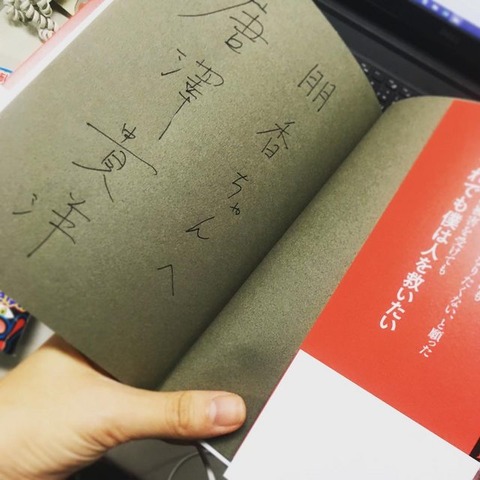 朋香ちゃんへ
唐澤貴洋
たくない」と願った
でも僕は人を救いたい